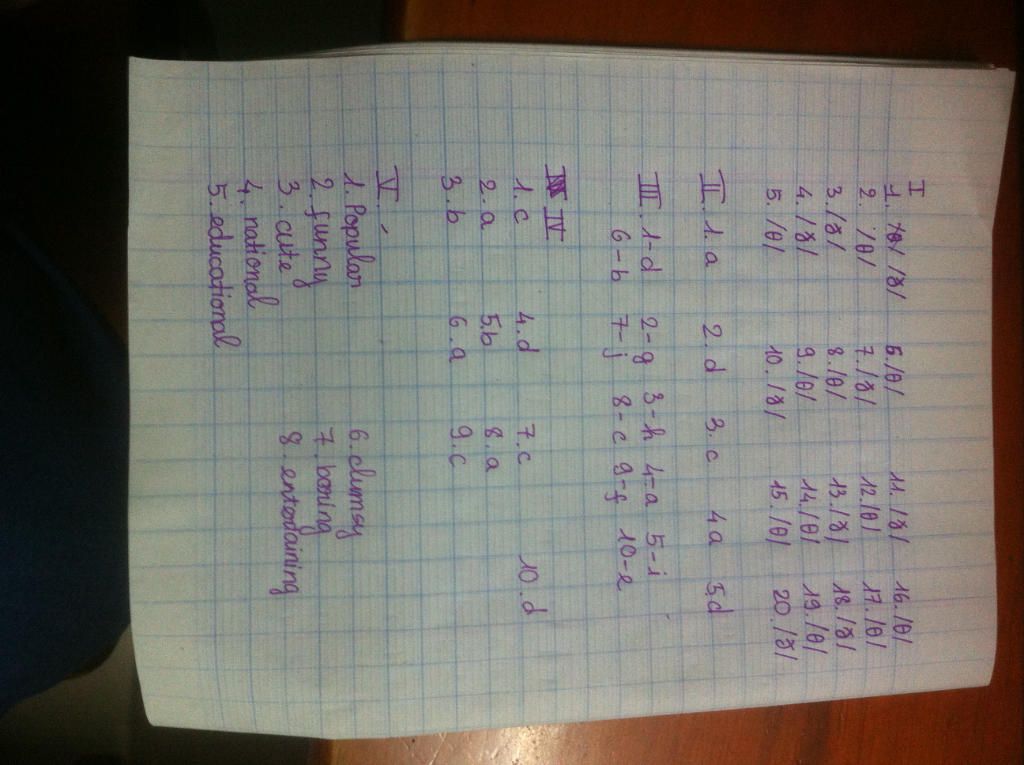 I
1. /ð/ 6./θ/ 11./ð/ 16./θ/
2. /θ/ 7./ð/ 12./θ/ 17./θ/
3./ð/ 8./θ/ 13./ð/ 18./ð/
4./ð/ 9./θ/ 14./θ/ 19./θ/
5./θ/ 10./ð/ 15./θ/ 20./ð/
II. 1.a 2.d 3.c 4a 5.d
III. 1-d 2-g 3-h 4-a 5-i
6-b 7-j 8-c 9-f 10-e
IV
1.c 4.d 7.c 10.d
2.a 5.b 8.a
3.b 6.a 9.c
V.
1. Popular 6. clumsy
2. funny 7. boring
3. cute 8. entertaining
4. national
5. educational